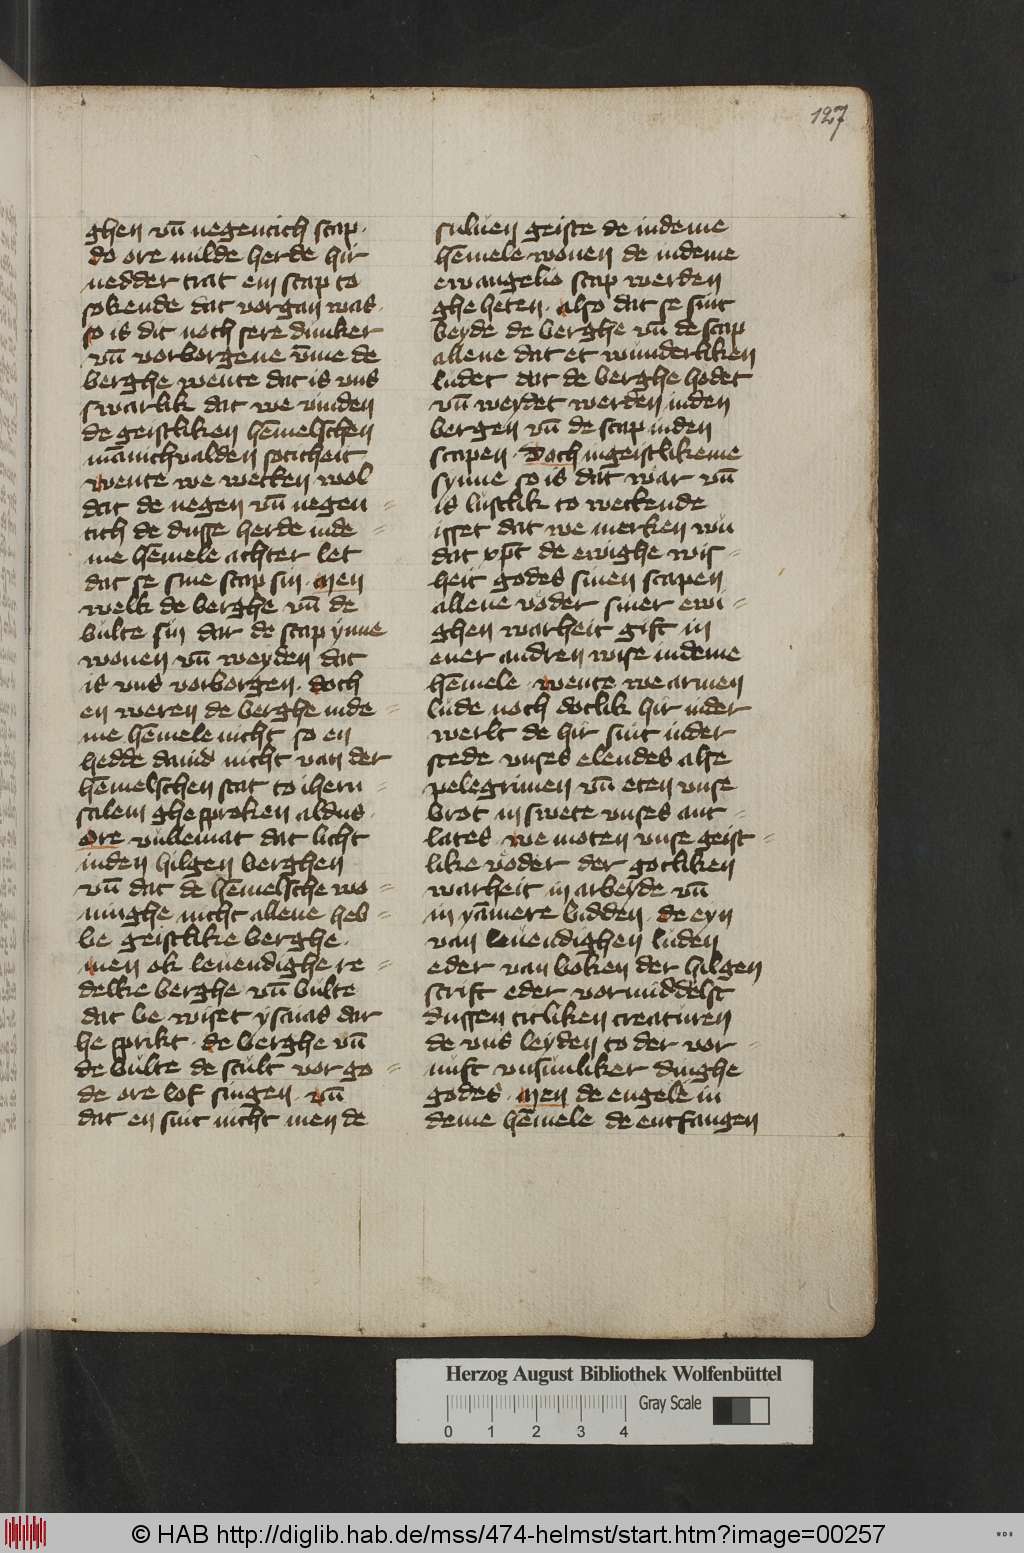 127
ghen vn̄ negentich scap·
do ore milde herde hir
nedder trat ein scap to
sokende dat vorgan was·
so is dit noch sere dunker
vn̄ vorborgene vm̄e de
berghe wente dat is vns
swarlik dat we vinden
de geistliken hēmelschen
mānichualden soticheit
wente we wetken wol
dat de negen vn̄ negen=
tich de dusse herde inde=
me hēmele achter let
dat se sine scap sin· men
welk de berghe vn̄ de
bulte sin dar de scap ynne
wonen vn̄ weyden dat
is vns vorborgen· doch
en weren de berghe inde=
me hēmele nicht so en
hedde dauid nicht van der
hēmelschen stat to iheru=
salem ghesproken aldus·
Ore vullemat dat licht
inden hilgen berghen
vn̄ dat de hēmelsche wo=
ninghe nicht allene heb=
be geistlike berghe·
men ok leuendighe re=
delke berghe vn̄ bulte
dat be wiset ysaias dar
he sprikt· de berghe vn̄
de bulte de scult vor go=
de ore lof singen· vn̄
dat en sint nicht men de
suluen geiste de indeme
hēmele wonen de indeme
ewangelio scap werden
ghe heten· also dat se sint
beyde de berghe vn̄ de scap
allene dat et wunderliken
ludet dat de berghe hodet
vn̄ weydet werden inden
bergen vn̄ de scap inden
scapen· Doch ingeistlikeme
synne so is dat war vn̄
is lustlik to wetkende
isset dat we merken wu
dat xp̄t de ewighe wis=
heit godes sinen scapen
allene voder siner ewi=
ghen warheit gift in
ener andren wise indeme
hēmele· wente we armen
lude noch dotlik hir inder
werlt de hir sint inder
stede vnses elendes alse
pelegrimen vn̄ eten vnse
brot in swete vnses ant=
lates we moten vnse geist=
like voder der gotliken
warheit in arbeyde vn̄
in yāmere bidden· de eyn
van leuendighen luden
eder van boken der hilgen
scrift eder vormiddelst
dussen titliken creaturen
de vns leyden to der vor=
nuft vnsunliker dinghe
godes· Men de engele in
deme hēmele de entfangen
Herzog August Bibliothek Wolfenbüttel
Gray Scale
0 1 2 3 4
© HAB http://diglib.hab.de/mss/474-helmst/start.htm?image=00257